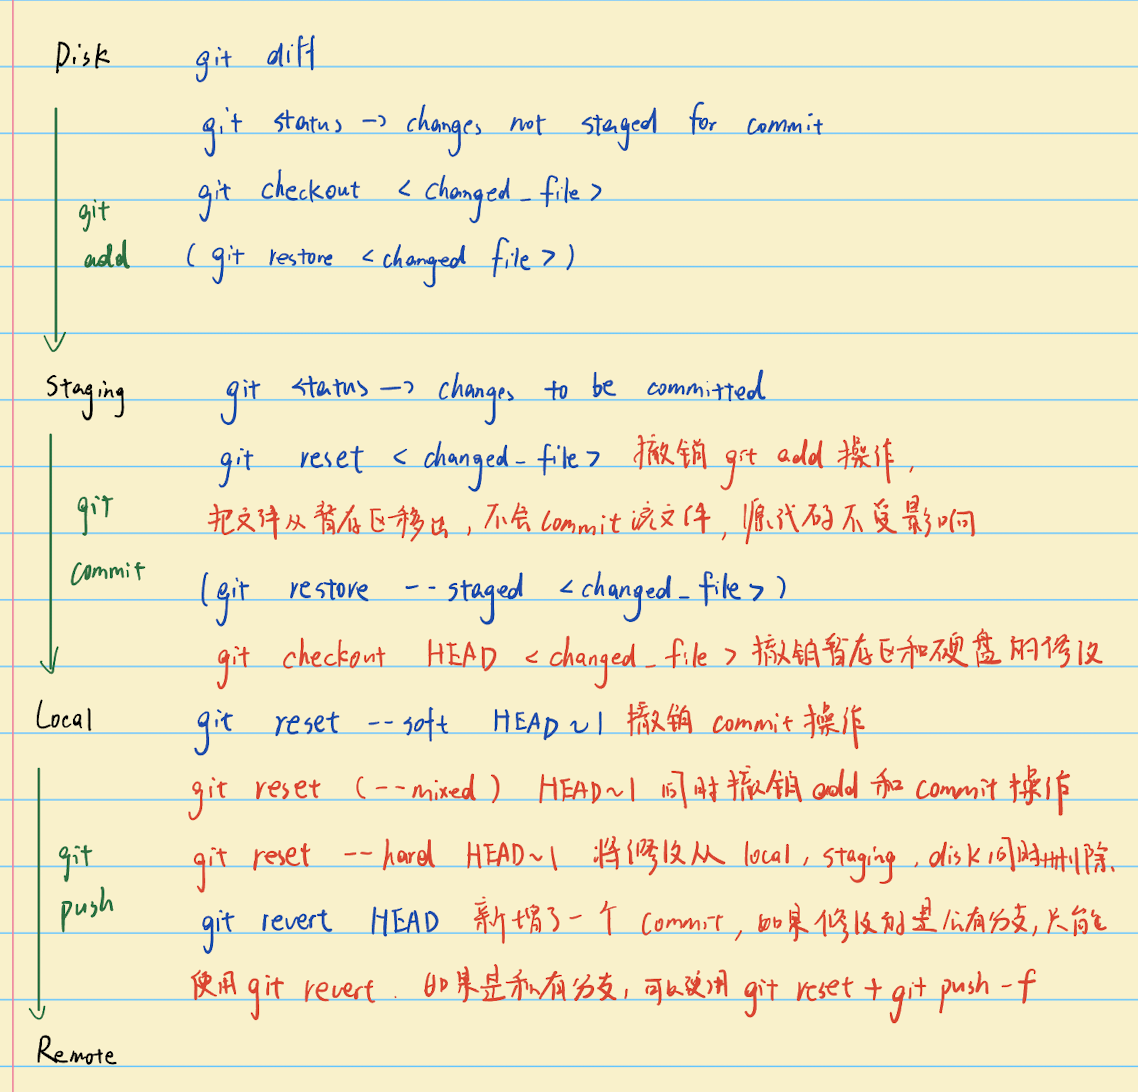 Disk git diff
git status -> changes not staged for commit
git checkout < changed_file >
git
add ( git restore < changed file > )
Staging git status -> changes to be committed
git reset < changed_file > 撤销 git add 操作,
git
把文件从暂存区移出, 不会 commit 该文件, 源代码不受影响
commit (git restore --staged < changed_file > )
git checkout HEAD < changed_file > 撤销暂存区和硬盘的修改
Local git reset --soft HEAD~1 撤销 commit 操作
git reset (--mixed) HEAD~1 同时撤销 add 和 commit 操作
git git reset --hard HEAD~1 将修改从 local, staging, disk 同时删除.
push git revert HEAD 新增了一个 commit, 如果修改的是公有分支, 只能
使用 git revert. 如果是私有分支, 可以使用 git reset + git push -f
Remote